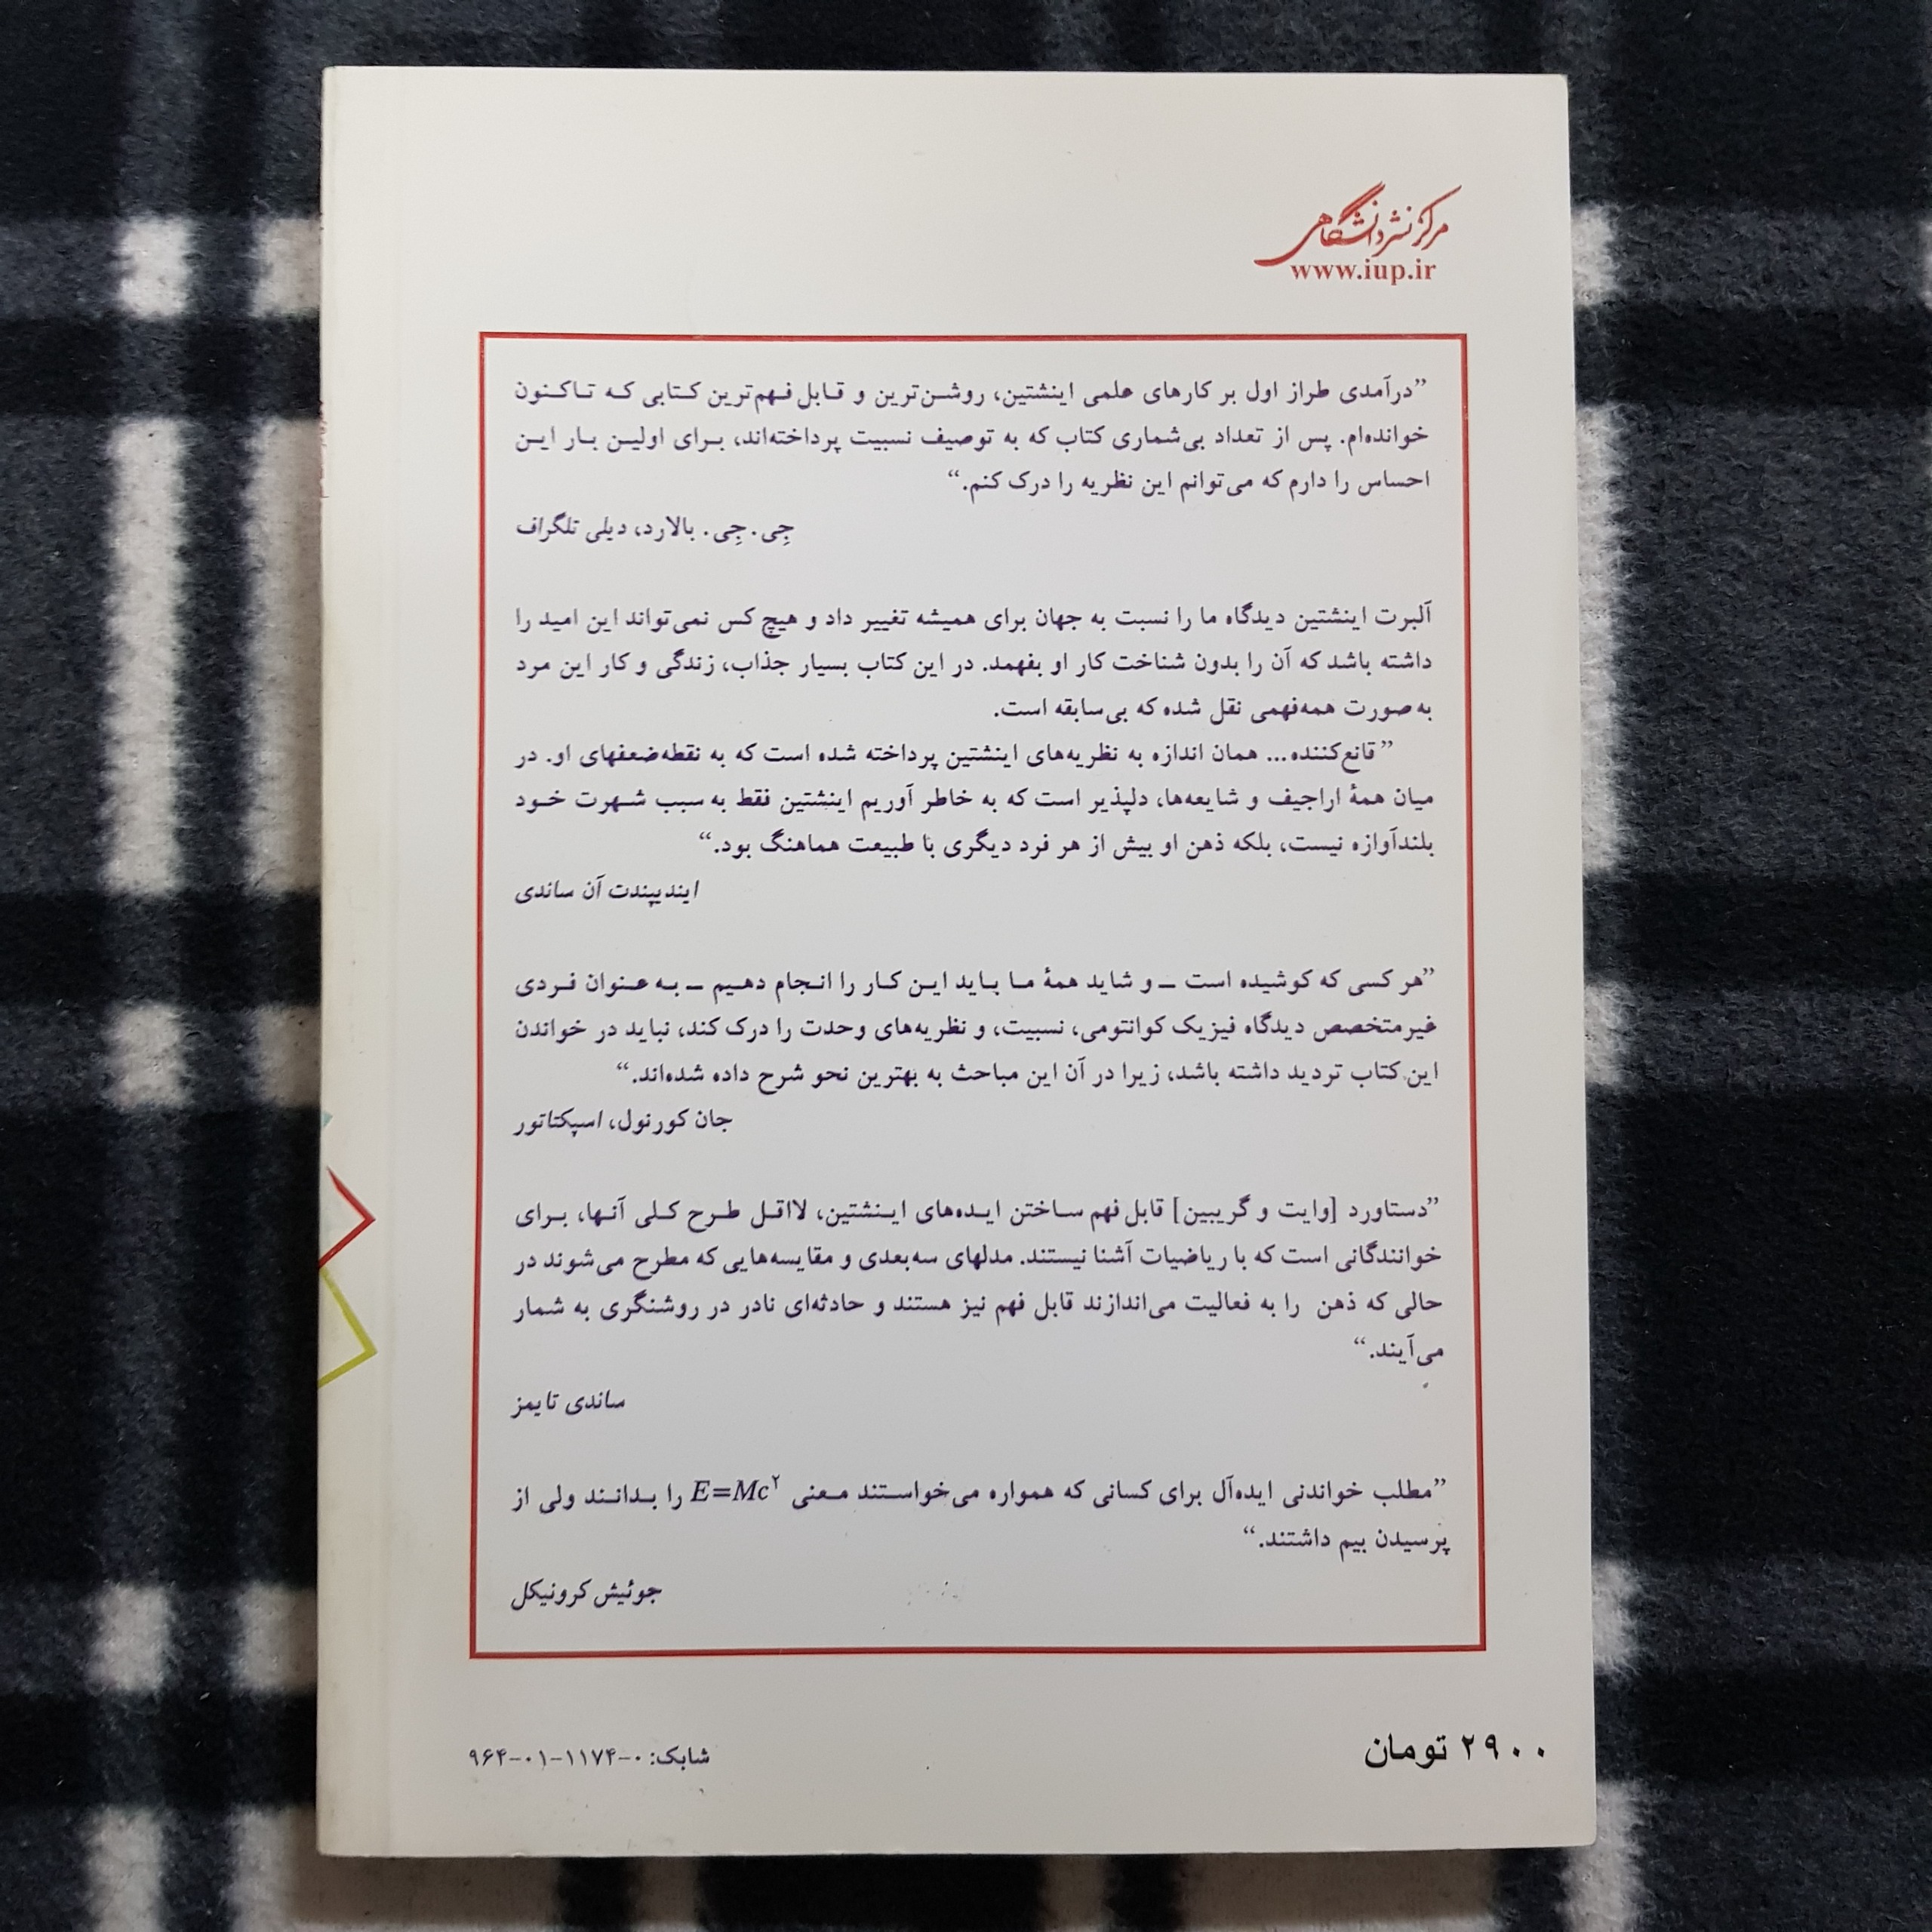 مرکز نشر دانشگاهی
www.iup.ir
”درآمدی طراز اول بر کارهای علمی اینشتین، روشن‌ترین و قابل فهم‌ترین کتابی که تاکنون
خوانده‌ام. پس از تعداد بی‌شماری کتاب که به توصیف نسبیت پرداخته‌اند، برای اولین بار این
احساس را دارم که می‌توانم این نظریه را درک کنم.“
جِی. جِی. بالارد، دیلی تلگراف
آلبرت اینشتین دیدگاه ما را نسبت به جهان برای همیشه تغییر داد و هیچ کس نمی‌تواند این امید را
داشته باشد که آن را بدون شناخت کار او بفهمد. در این کتاب بسیار جذاب، زندگی و کار این مرد
به صورت همه‌فهمی نقل شده که بی‌سابقه است.
”قانع‌کننده... همان اندازه به نظریه‌های اینشتین پرداخته شده است که به نقطه‌ضعفهای او. در
میان همهٔ اراجیف و شایعه‌ها، دلپذیر است که به خاطر آوریم اینشتین فقط به سبب شهرت خود
بلندآوازه نیست، بلکه ذهن او بیش از هر فرد دیگری با طبیعت هماهنگ بود.“
ایندیپندت آن ساندی
”هر کسی که کوشیده است ــ و شاید همهٔ ما باید این کار را انجام دهیم ــ به عنوان فردی
غیرمتخصص دیدگاه فیزیک کوانتومی، نسبیت، و نظریه‌های وحدت را درک کند، نباید در خواندن
این کتاب تردید داشته باشد، زیرا در آن این مباحث به بهترین نحو شرح داده شده‌اند.“
جان کورنول، اسپکتاتور
”دستاورد [وایت و گریبین] قابل فهم ساختن ایده‌های اینشتین، لااقل طرح کلی آنها، برای
خوانندگانی است که با ریاضیات آشنا نیستند. مدلهای سه‌بعدی و مقایسه‌هایی که مطرح می‌شوند در
حالی که ذهن را به فعالیت می‌اندازند قابل فهم نیز هستند و حادثه‌ای نادر در روشنگری به شمار
می‌آیند.“
ساندی تایمز
”مطلب خواندنی ایده‌آل برای کسانی که همواره می‌خواستند معنی E=Mc۲ را بدانند ولی از
پرسیدن بیم داشتند.“
جوئیش کرونیکل
۲۹۰۰ تومان
شابک: ۰-۱۱۷۴-۰۱-۹۶۴